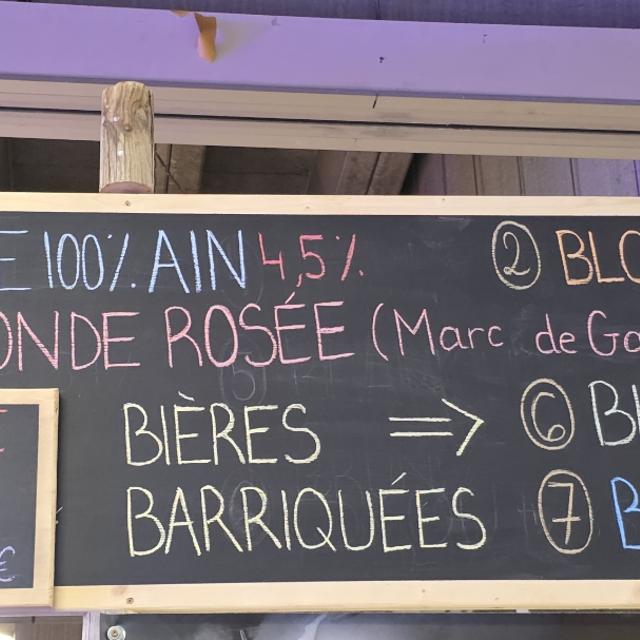 100% AIN 4,5% ② BLO
ONDE ROSÉE (Marc de Ga
BIÈRES => ⑥ B
BARRIQUÉES ⑦ B
€